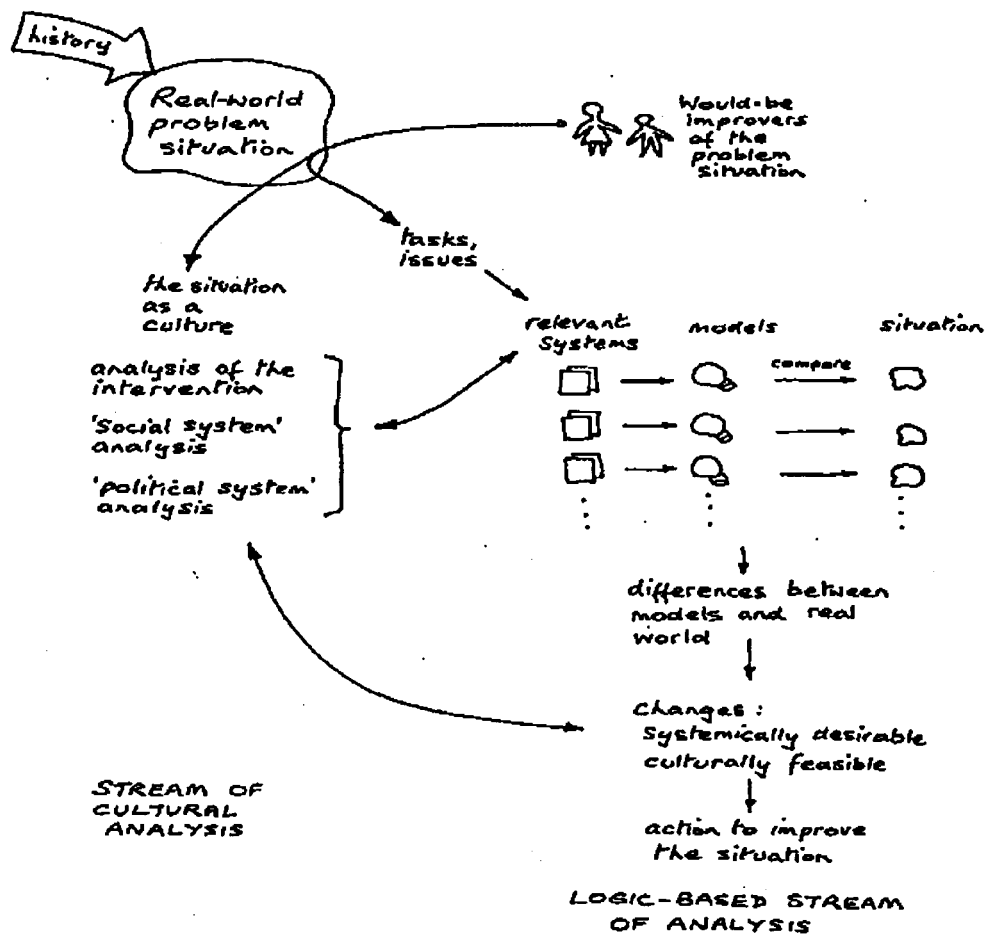 history
Real-world
problem
situation
Would-be
improvers
of the
problem
situation
tasks,
issues
the situation
as a
culture
analysis of the
intervention
'Social system'
analysis
'political system'
analysis
relevant
Systems
models
situation
compare
differences between
models and real
world
Changes:
Systemically desirable
culturally feasible
action to improve
the situation
STREAM OF
CULTURAL
ANALYSIS
LOGIC-BASED STREAM
OF ANALYSIS